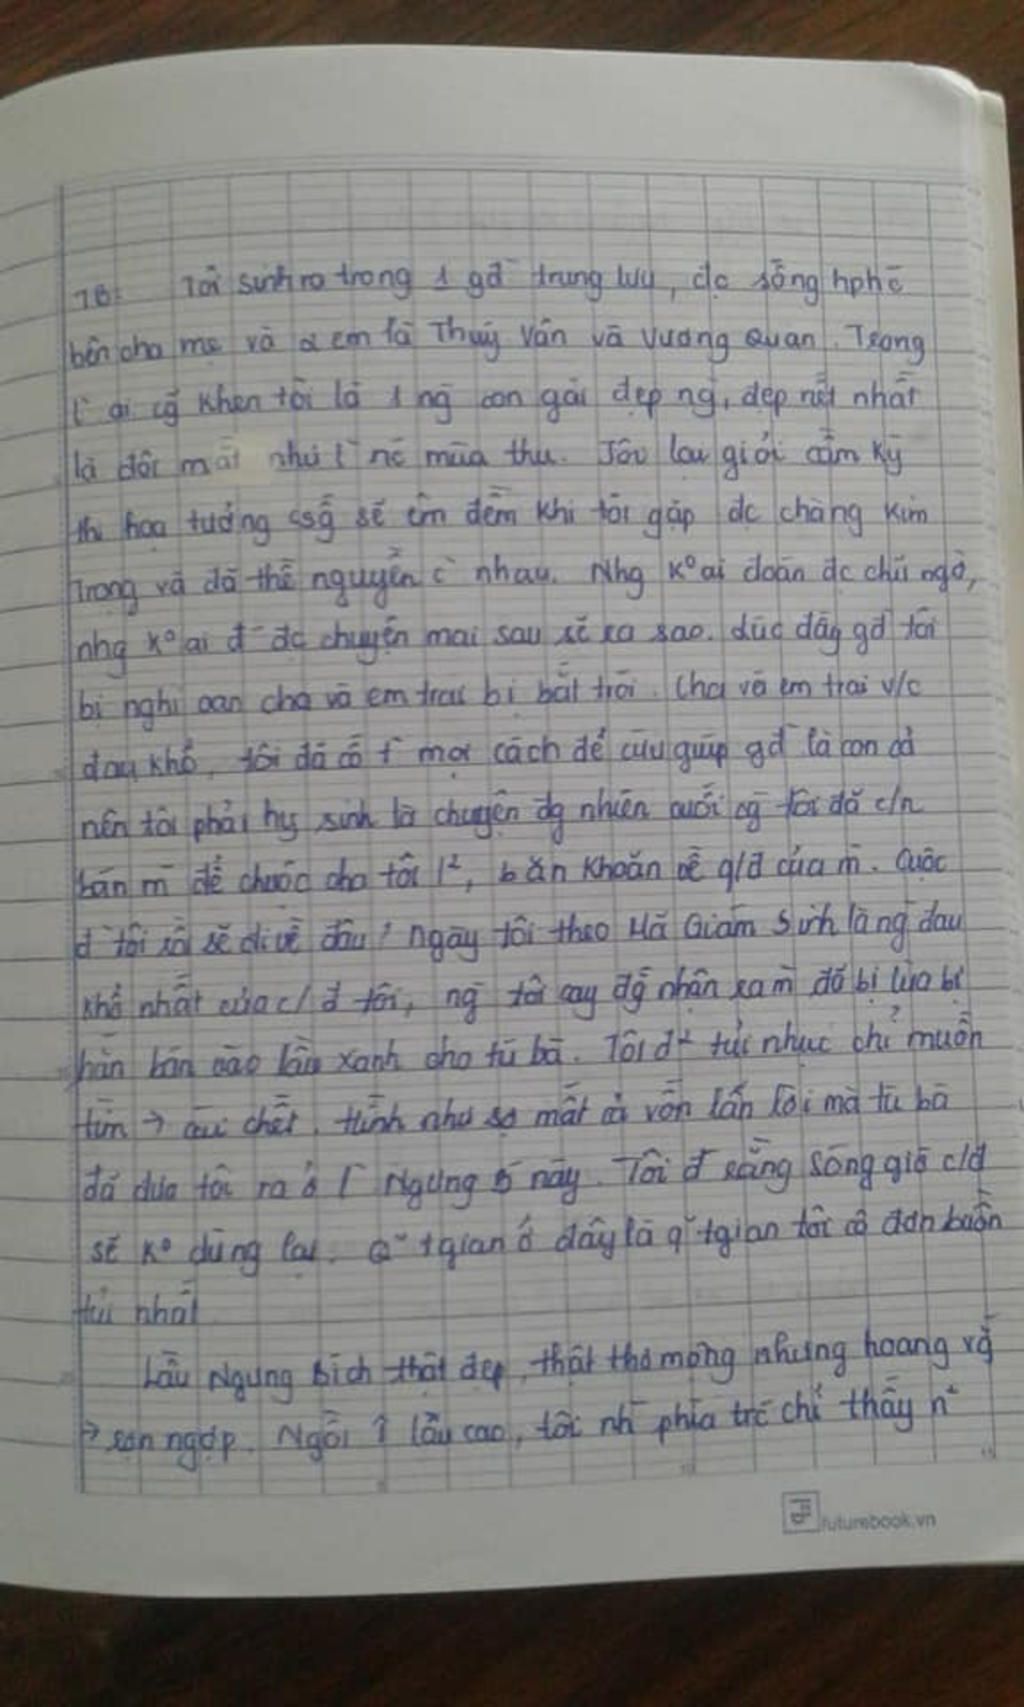 TB: Tôi sinh ra trong 1 gđ trung lưu, đc sống hphc
bên cha mẹ và 2 em là Thuý Vân và Vương Quan. Trong
ai cg khen tôi là 1 ng con gái đẹp ng, đẹp nết nhất
là đôi mắt như nc mùa thu. Tôi lại giỏi cầm kỳ
thi hoạ tưởng csg sẽ êm đềm khi tôi gặp đc chàng Kim
Trọng và đã thề nguyền c nhau. Nhg k° ai đoán đc chữ ngờ,
nhg k° ai đ đc chuyện mai sau sẽ ra sao. Lúc đấy gđ tôi
bị nghi oan cha và em trai bị bắt trói. Cha và em trai v/c
đau khổ, tôi đã cố f mọi cách để cứu giúp gđ là con cả
nên tôi phải hy sinh là chuyện đg nhiên cuối cg tôi đã c/n
bán m để chuộc cha tôi l², băn khoăn về g/đ của m. Cuộc
đ tôi rồi sẽ đi về đâu? Ngày tôi theo Mã Giám Sinh là ng đau
khổ nhất của c/đ tôi, ng tôi cay đg nhận ra m đã bị lừa bị
hắn bán vào lầu xanh cho tú bà. Tôi đ² tủi nhục chỉ muốn
tìm → cái chết. Hình như sợ mất cả vốn lẫn lời mà tú bà
đã đưa tôi ra ở l Ngưng b này. Tôi đ rằng sóng gió c/đ
sẽ k° dừng lại. Q tgian ở đây là q tgian tôi cô đơn buồn
tủi nhất
Lầu Ngưng Bích thật đẹp, thật thơ mộng nhưng hoang vg
→ rợn ngợp. Ngồi ↑ lầu cao, tôi nh phía trc chỉ thấy n²
futurebook.vn